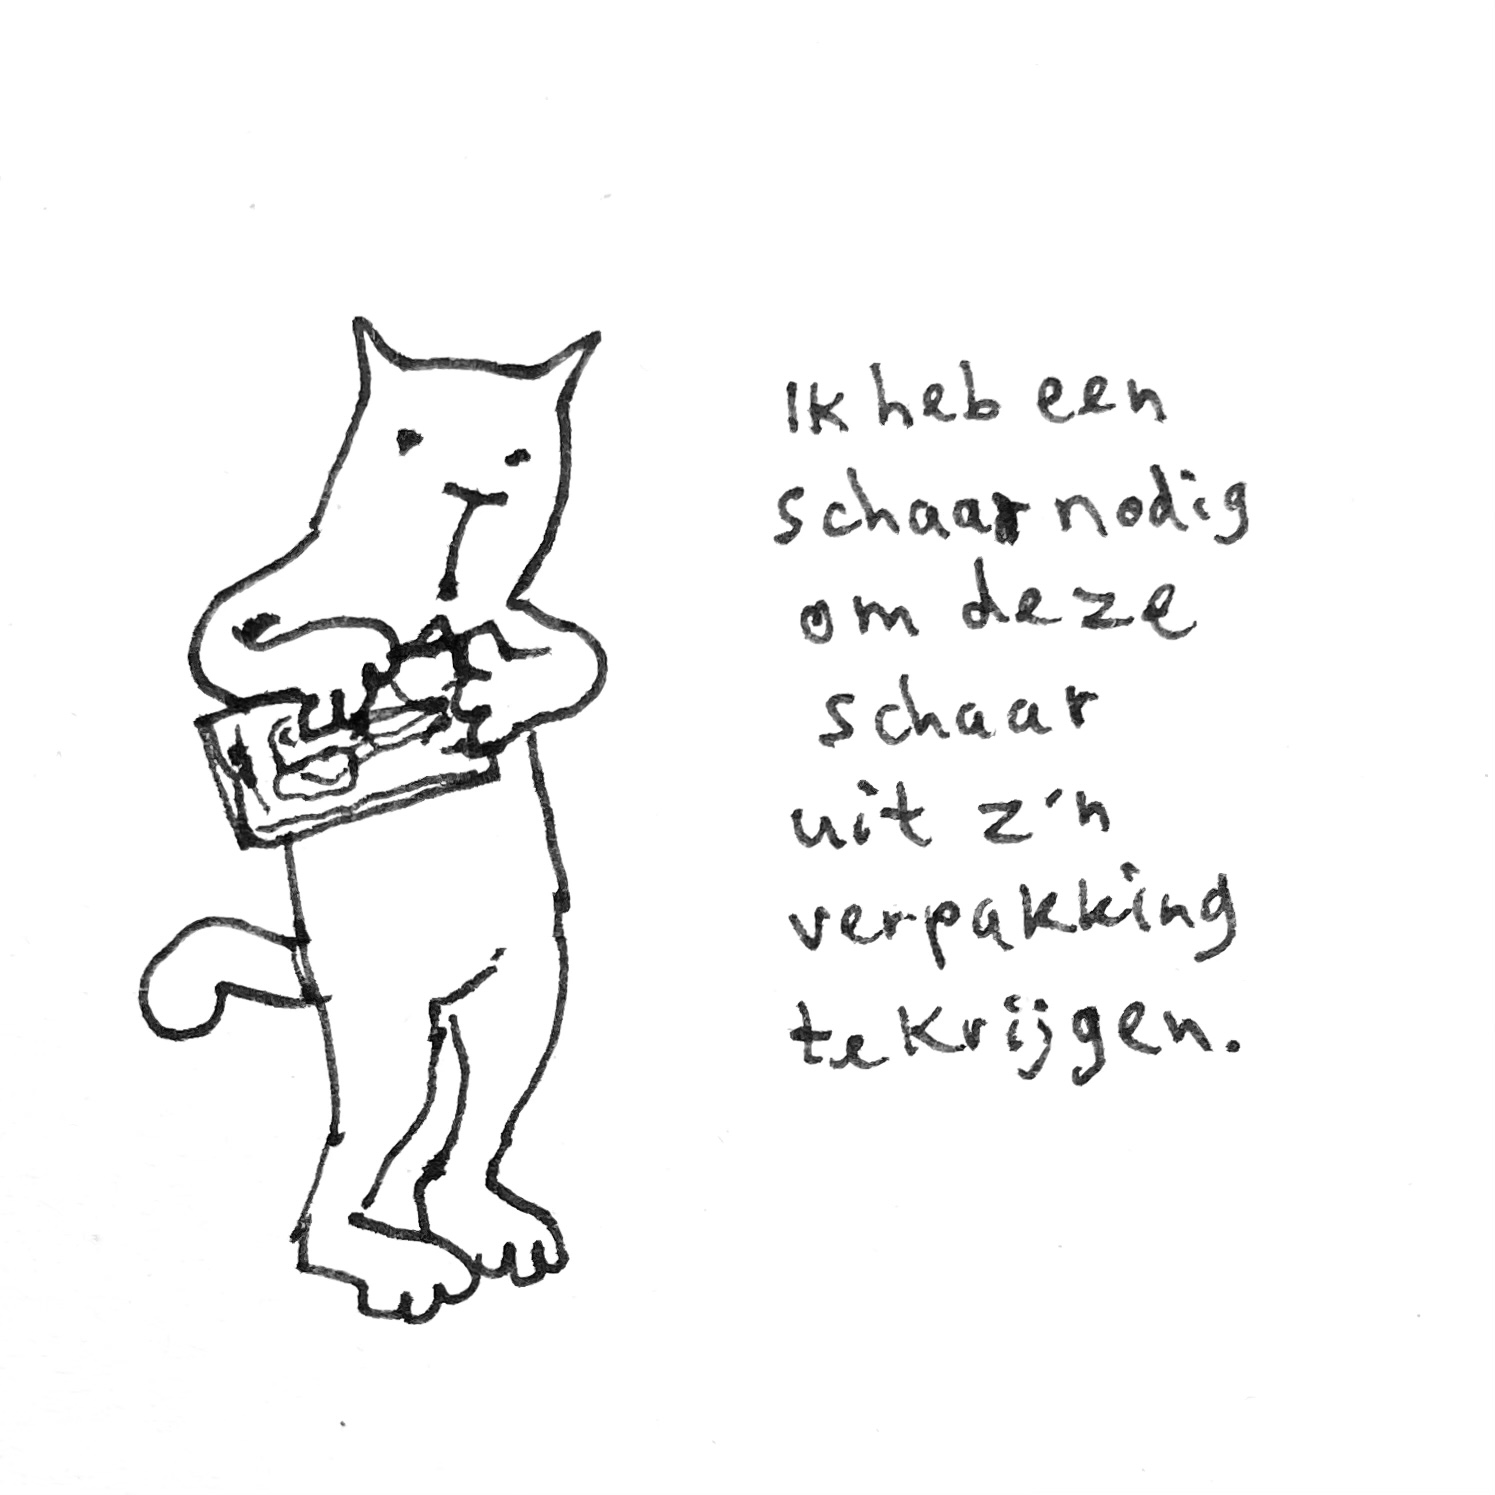 Ik heb een
schaar nodig
om deze
schaar
uit z'n
verpakking
te krijgen.